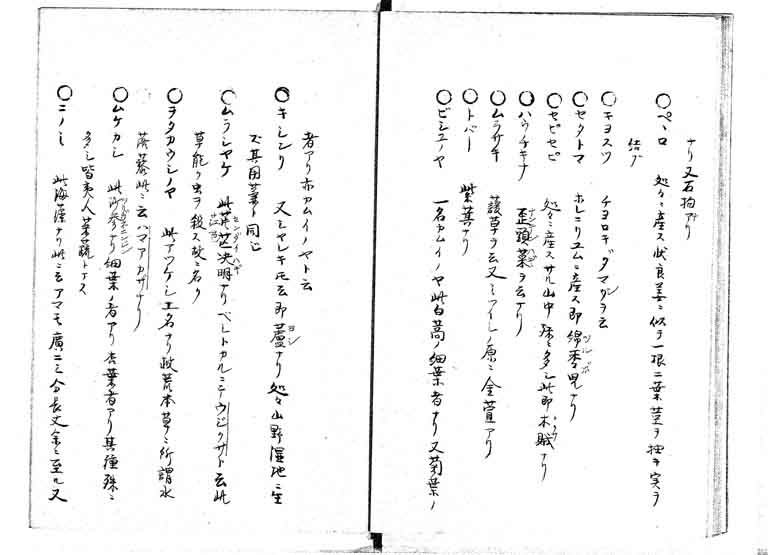 ナリ又石拘アリ
〇ペロ 処々ニ産ス状良姜ニ似テ一根二葉茎ヲ抽キ実ヲ
結ブ
〇キヨスツ チヨロギダマグヲ云
〇セタトマ ホレニリユムニ産ス即綿棗児ナリ
〇セピセピ 処々ニ産スサル山中殊ニ多シ此即木賊ナリ
〇ハウチキナ 歪頭菜ヲ云ナリ
〇ムラサキ 護草ヲ云又ミツイシノ原ニ金萱アリ
〇トバー 紫葛ナリ
〇ビシユノヤ 一名カムイノヤ此白蒿ノ細葉者ナリ又菊葉ノ
者アリ亦カムイノヤト云
〇キシンリ 又シヤレキモ云即蘆ナリ処々山野湿地ニ生
ズ其用葦ト同じ
〇ムラシヤケ 此茳芒决明ナリベレトカルニテウジクサト云此
草能ク虫ヲ殺ス故ニ名ク
〇ヲタカウシノヤ 此アツケシ土名ナリ救荒本草ニ所謂水
落藜此ニ云ハマアカサナリ
〇ムケカシ 此沙参ナリ細葉ノ者アリ杏葉者アリ其種殊ニ
多シ皆夷人菜蔬トナス
〇ニノミ 此海薀ナリ此ニ云アマモ廣二三分長丈余ニ至ル又